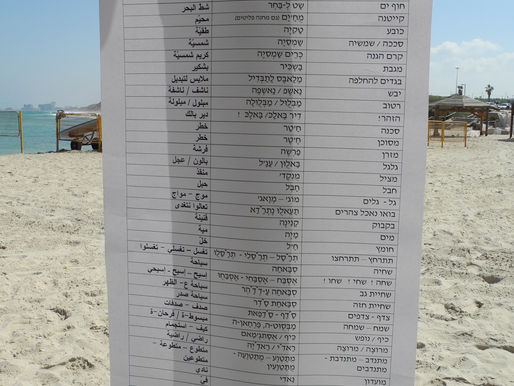 חוף ים שַׁטּ לְ-בַּחַר شط البحر
קייטנה מֻחַ'יַּם (גם מחנה פליטים) مخيّم
כובע טַקִיֶּה طقيّة
סככה / שמשיה שַׁמְסִיֶּה شمسيّة
קרם הגנה כְּרֵים שַׁמְסִיֶּה كريم شمسيّة
מגבת בַּשְׁכִּיר بشكير
בגדים להחלפה מַלַאבֶּס לַתַּבְּדִיל ملابس للتبديل
יבש נַאשֶׁף / נַאשְׁפֶה ناشف / ناشفة
רטוב מַבְּלוּל / מַבְּלוּלֶה مبلول / مبلولة
הזהר! דִיר בַּאלַכּ / בַּאלֵכּ ! دير بالك
סכנה חַ'טַר خطر
מסוכן חִ'טֶר خطر
מזרן פַרְשֶׁה فرشة
גלגל בַּאלוֹן / עַגַ'ל بالون / عجل
מציל מֻנְקִד' منقذ
חבל חַבֶּל حبل
גל - גלים מוֹג' - מְוַאג' موج - مواج
בואו נאכל צהרים תַעַאלוּ נִתְעַ'דַּא تعالوا نتغدى
בקבוק קַנִּינֶה قنّينة
מים מַיֶּה ميّة
חומץ חַ'ל خلّ
תתרחץ - תתרחצו תְעַ'סַּל - תְעַ'סַּלִי - תְעַ'סַּלוּ تغسل - تغسلي - تغسلوا
שחיה סְבַּאחַה سباحة
שחה ! שחי ! שחו ! אִסְבַּח - אִסְבַּחִי - אִסְבַּחוּ اسبح - اسبحي
שחיית גב סְבַּאחַה עַ-דַ'הֶר سباحة ع-الظهر
שחיית חזה סְבַּאחַת סִדֶר سباحة صدر
צדף - צדפים צַדַף - צַדַפַאת صدف - صدفات
שמח - שמחה מַבְּסוּט-ה, פַרְחַאן-ה مبسوط-ة / فرحان-ة
כיף / נופש כֵּיף / אִסְתִגְ'מַאם كيف / استجمام
מרוצה / מרוצה רַאצִ'י / רַאצְ'יֶה راضي / راضية
מתנדב - מתנדבת - מתנדבים מִתְטַוֵּע - מִתְטַוְּעַה - מִתְטַוְּעִין متطوع - متطوعة - متطوعين
מועדון נַאדִי نادي
في